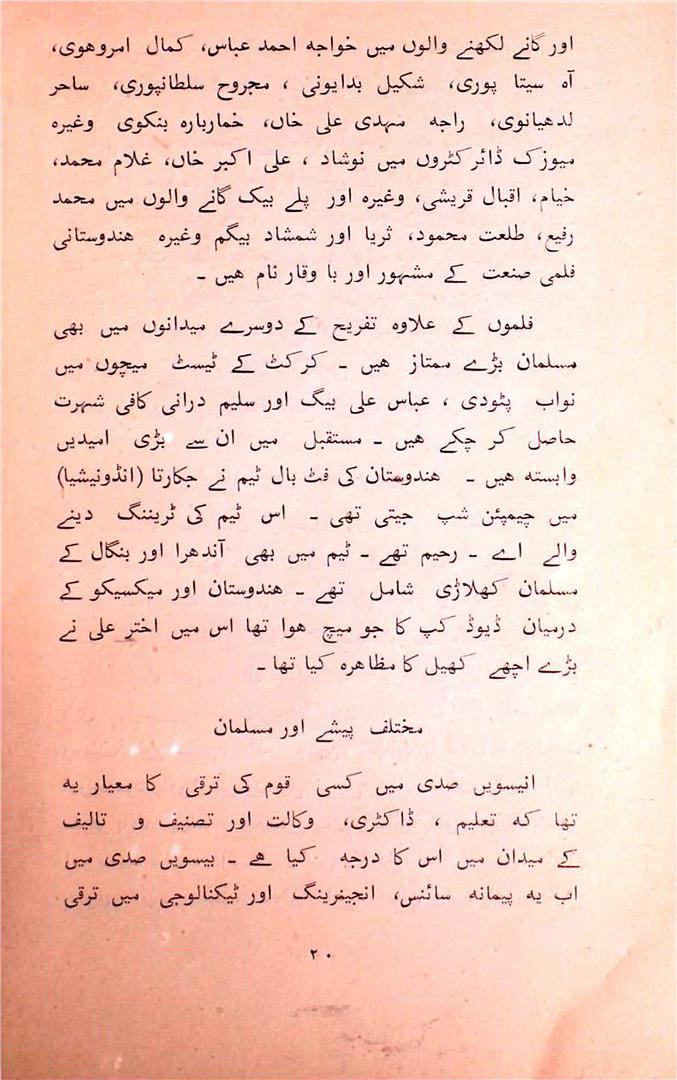 اور گانے لکھنے والوں میں خواجه احمد عباس، کمال امروهوی،
آہ سیتا پوری، شکیل بدایونی ، مجروح سلطانپوری، ساحر
لدھیانوی، راجه مہدی علی خاں، خماربارہ بنکوی وغیرہ
میوزک ڈائرکٹروں میں نوشاد ، علی اکبر خاں، غلام محمد،
خیام، اقبال قریشی، وغیرہ اور پلے بیک گانے والوں میں محمد
رفیع، طلعت محمود، ثریا اور شمشاد بیگم وغیرہ هندوستانی
فلمی صنعت کے مشہور اور با وقار نام هیں ۔
فلموں کے علاوہ تفریح کے دوسرے میدانوں میں بھی
مسلمان بڑے ممتاز هیں ۔ کرکٹ کے ٹیسٹ میچوں میں
نواب پٹودی ، عباس علی بیگ اور سلیم درانی کافی شہرت
حاصل کر چکے هیں ۔ مستقبل میں ان سے بڑی امیدیں
وابسته هیں ۔ هندوستان کی فٹ بال ٹیم نے جکارتا (انڈونیشیا)
میں چیمپئن شپ جیتی تھی ۔ اس ٹیم کی ٹریننگ دینے
والے اے ۔ رحیم تھے ۔ ٹیم میں بھی آندھرا اور بنگال کے
مسلمان کھلاڑی شامل تھے ۔ هندوستان اور میکسیکو کے
درمیان ڈیوڈ کپ کا جو میچ هوا تھا اس میں اختر علی نے
بڑے اچھے کھیل کا مظاهرہ کیا تھا ۔
مختلف پیشے اور مسلمان
انیسویں صدی میں کسی قوم کی ترقی کا معیار یه
تھا که تعلیم ، ڈاکٹری، وکالت اور تصنیف و تالیف
کے میدان میں اس کا درجه کیا ہے ۔ بیسویں صدی میں
اب یه پیمانه سائنس، انجینرینگ اور ٹیکنالوجی میں ترقی
۲۰